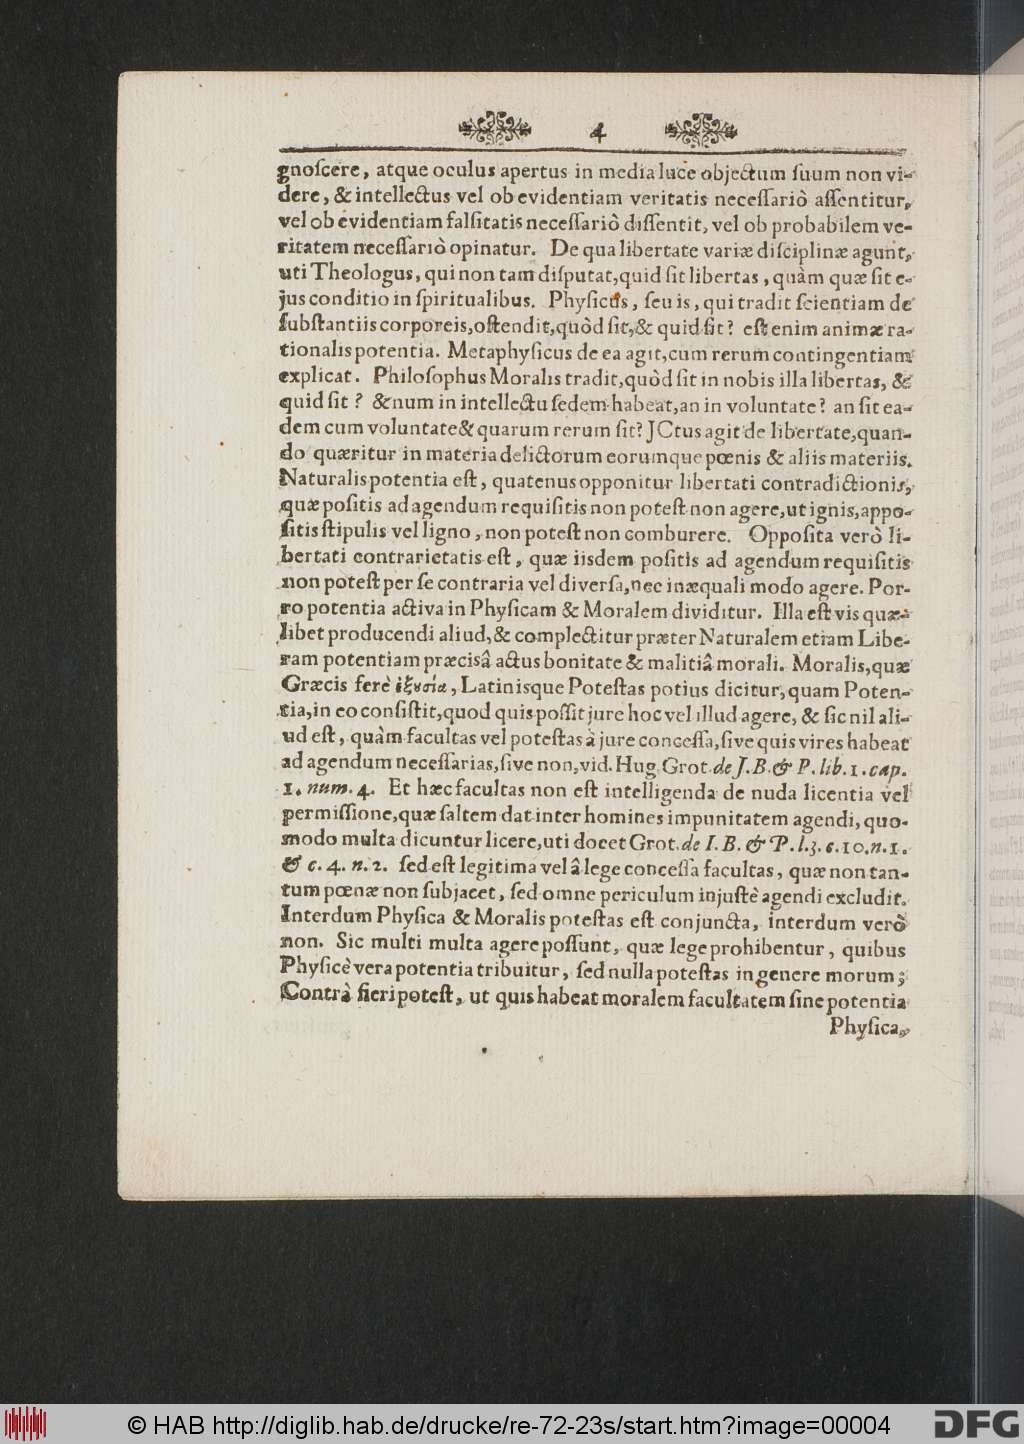 4
gnoſcere, atque oculus apertus in media luce objectum ſuum non vi-
dere, & intellectus vel ob evidentiam veritatis neceſſariò aſſentitur,
vel ob evidentiam falſitatis neceſſariò diſſentit, vel ob probabilem ve-
ritatem neceſſariò opinatur. De qua libertate variæ diſciplinæ agunt,
uti Theologus, qui non tam diſputat, quid ſit libertas, quàm quæ ſit e-
jus conditio in ſpiritualibus. Phyſicus, ſeu is, qui tradit ſcientiam de
ſubſtantiis corporeis, oſtendit, quòd ſit, & quid ſit? eſt enim animæ ra-
tionalis potentia. Metaphyſicus de ea agit, cum rerum contingentiam
explicat. Philoſophus Moralis tradit, quòd ſit in nobis illa libertas, &
quid ſit? & num in intellectu ſedem habeat, an in voluntate? an ſit ea-
dem cum voluntate & quarum rerum ſit? JCtus agit de libertate, quan-
do quæritur in materia delictorum eorumque pœnis & aliis materiis.
Naturalis potentia eſt, quatenus opponitur libertati contradictionis,
quæ poſitis ad agendum requiſitis non poteſt non agere, ut ignis, appo-
ſitis ſtipulis vel ligno, non poteſt non comburere. Oppoſita verò li-
bertati contrarietatis eſt, quæ iisdem poſitis ad agendum requiſitis
non poteſt per ſe contraria vel diverſa, nec inæquali modo agere. Por-
ro potentia activa in Phyſicam & Moralem dividitur. Illa eſt vis quæ-
libet producendi aliud, & complectitur præter Naturalem etiam Libe-
ram potentiam præcisâ actus bonitate & malitiâ morali. Moralis, quæ
Græcis ferè ἐξουσία, Latinisque Poteſtas potius dicitur, quam Poten-
tia, in eo conſiſtit, quod quis poſſit jure hoc vel illud agere, & ſic nil ali-
ud eſt, quàm facultas vel poteſtas à jure conceſſa, ſive quis vires habeat
ad agendum neceſſarias, ſive non, vid. Hug. Grot. de J. B. & P. lib. 1. cap.
1. num. 4. Et hæc facultas non eſt intelligenda de nuda licentia vel
permiſſione, quæ ſaltem dat inter homines impunitatem agendi, quo-
modo multa dicuntur licere, uti docet Grot. de I. B. & P. l. 3. c. 10. n. 1.
& c. 4. n. 2. ſed eſt legitima vel â lege conceſſa facultas, quæ non tan-
tum pœnæ non ſubjacet, ſed omne periculum injuſtè agendi excludit.
Interdum Phyſica & Moralis poteſtas eſt conjuncta, interdum verò
non. Sic multi multa agere poſſunt, quæ lege prohibentur, quibus
Phyſicè vera potentia tribuitur, ſed nulla poteſtas in genere morum;
Contrà fieri poteſt, ut quis habeat moralem facultatem ſine potentia
Phyſica,
© HAB http://diglib.hab.de/drucke/re-72-23s/start.htm?image=00004
DFG